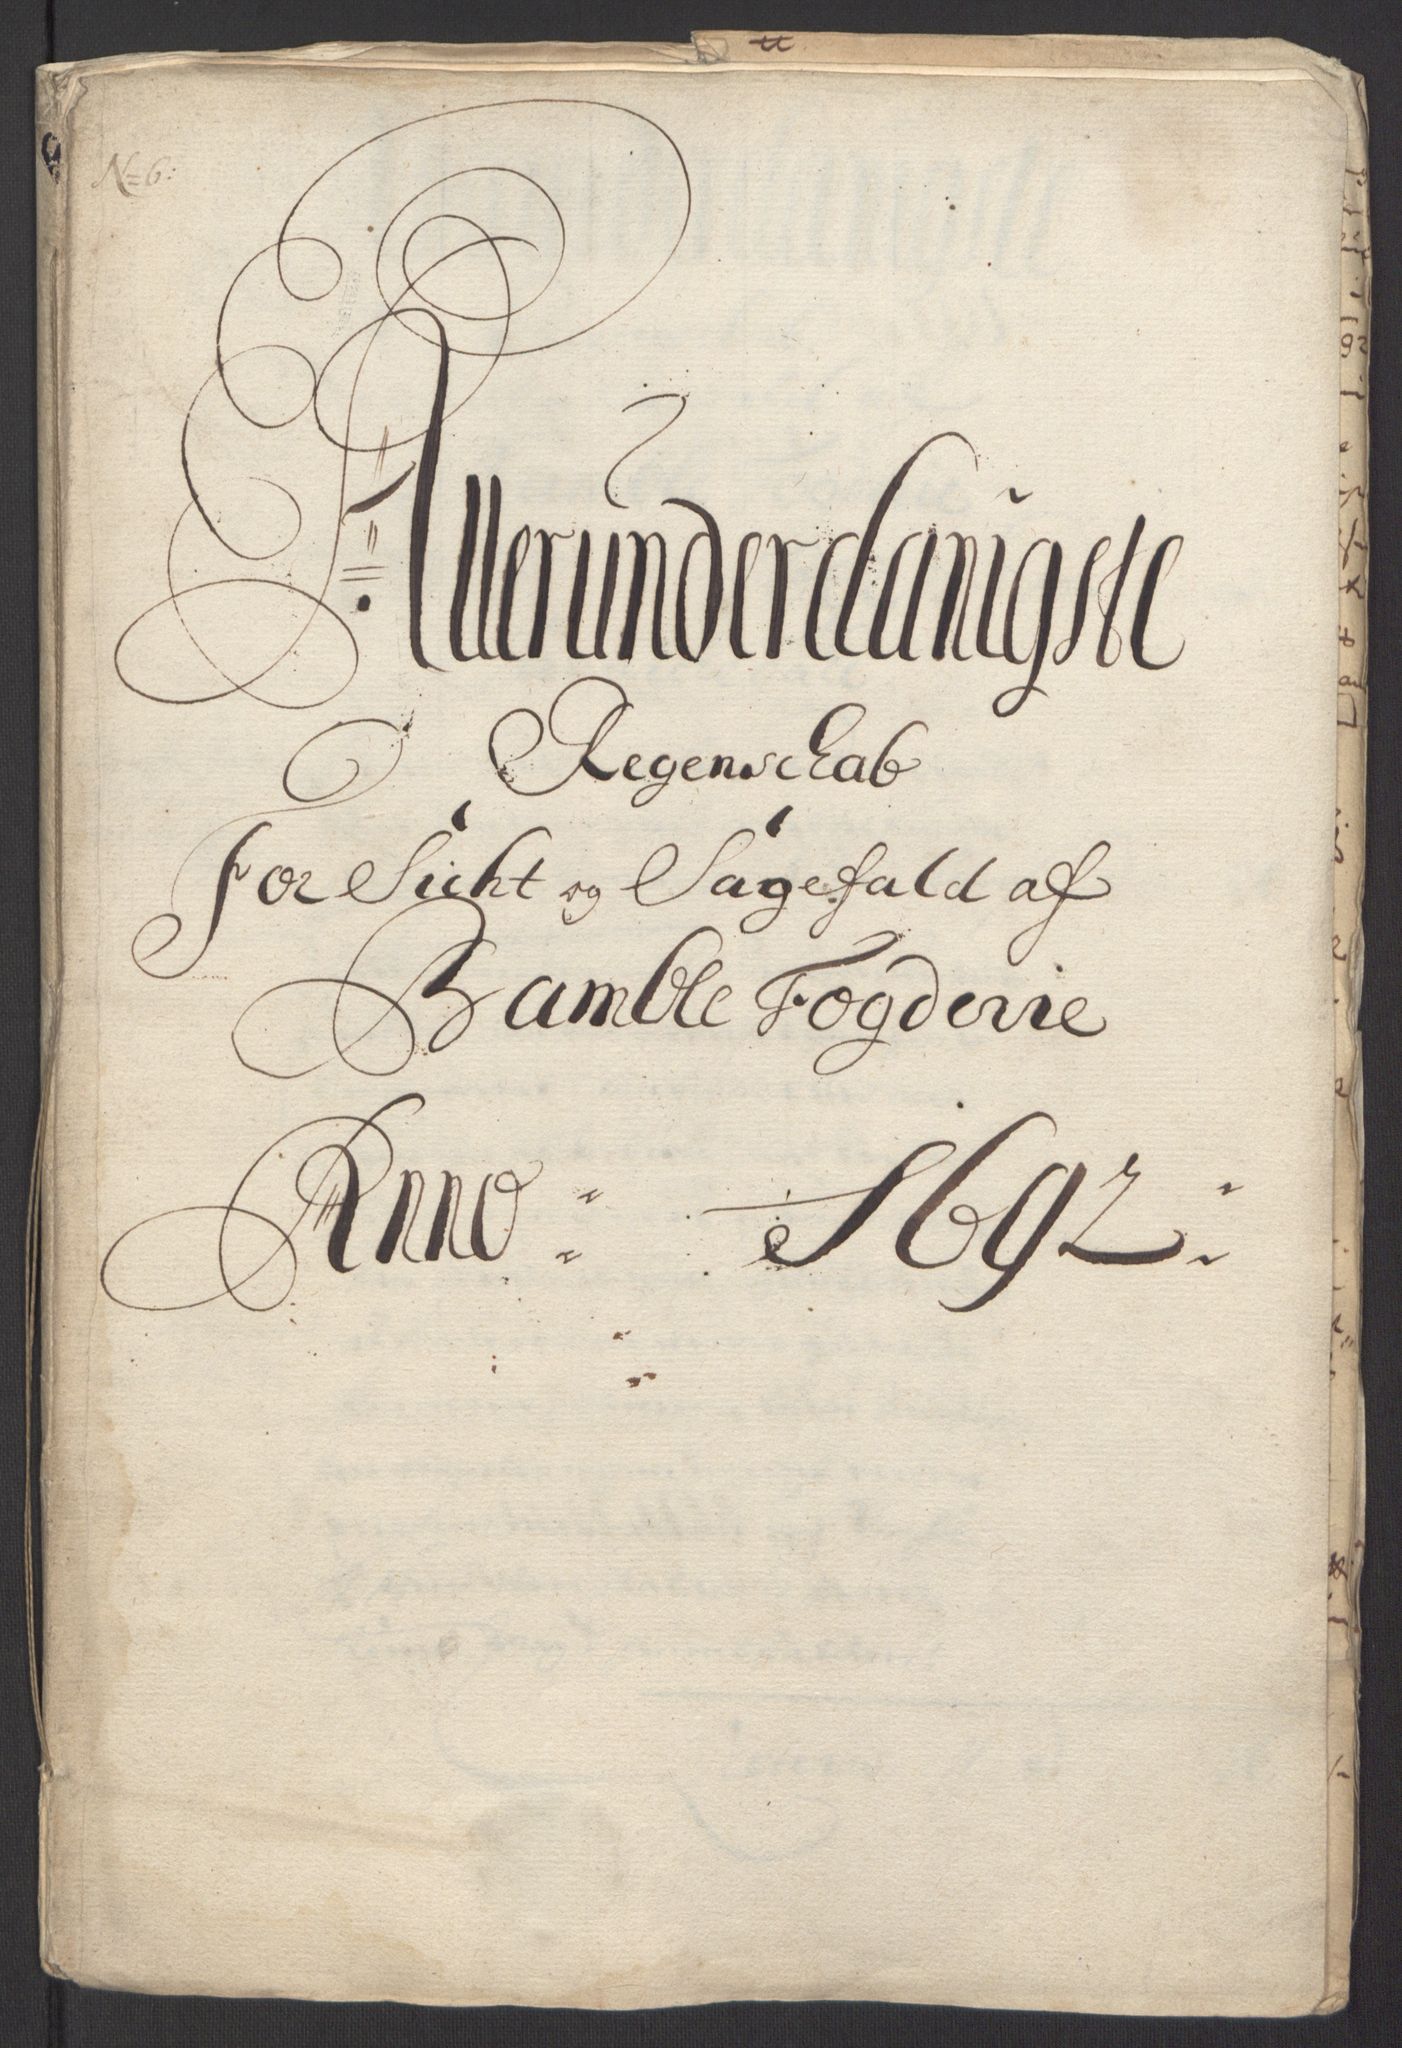 N=6:
Allerunderdanigste
Regenschab
For Sicht og Sagefald af
Bamble Fogderie
Anno 1692